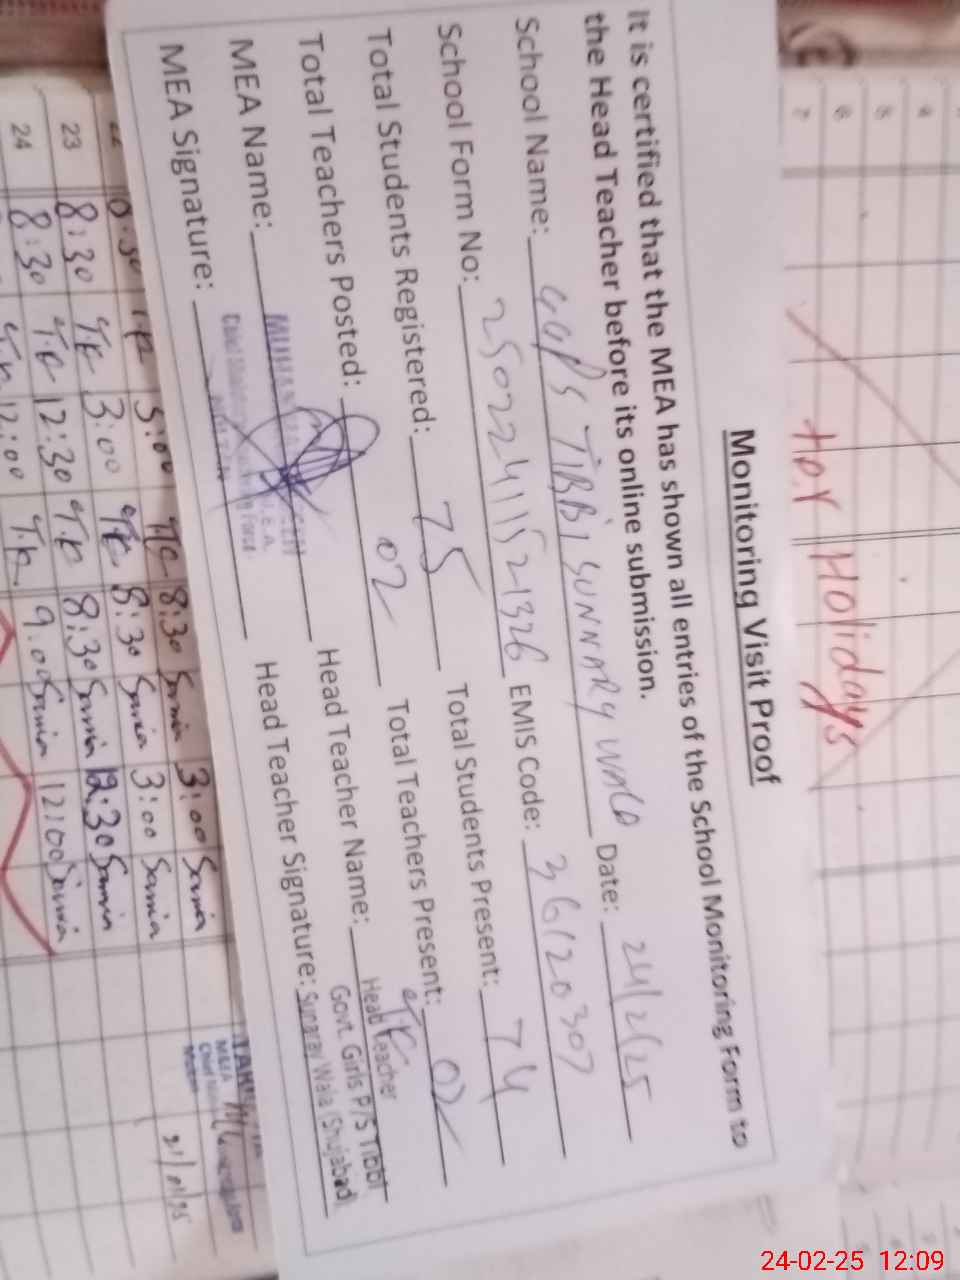 Monitoring Visit Proof
It is certified that the MEA has shown all entries of the School Monitoring Form to
the Head Teacher before its online submission.
School Name: GGPS TIBBI SUNNARY WALA Date: 24/2/25
School Form No: 25022411521326 EMIS Code: 36120307
Total Students Registered: 75 Total Students Present: 74
Total Teachers Posted: 02 Total Teachers Present: 02
MEA Name: Head Teacher Name: Head Teacher
Govt. Girls P/S Tibbi
MEA Signature: Head Teacher Signature: Sunaray Wala (Shujabad)
Hot Holidays
4
5
6
7
8:30 Samia 3:00 Samia
23 8:30 T.K 3:00 T.K 8:30 Samia 3:00 Samia
24 8:30 T.K 12:30 T.K 8:30 Samia 12:30 Samia
12:00 T.K 9:00 Samia 12:00 Samia
24-02-25 12:09